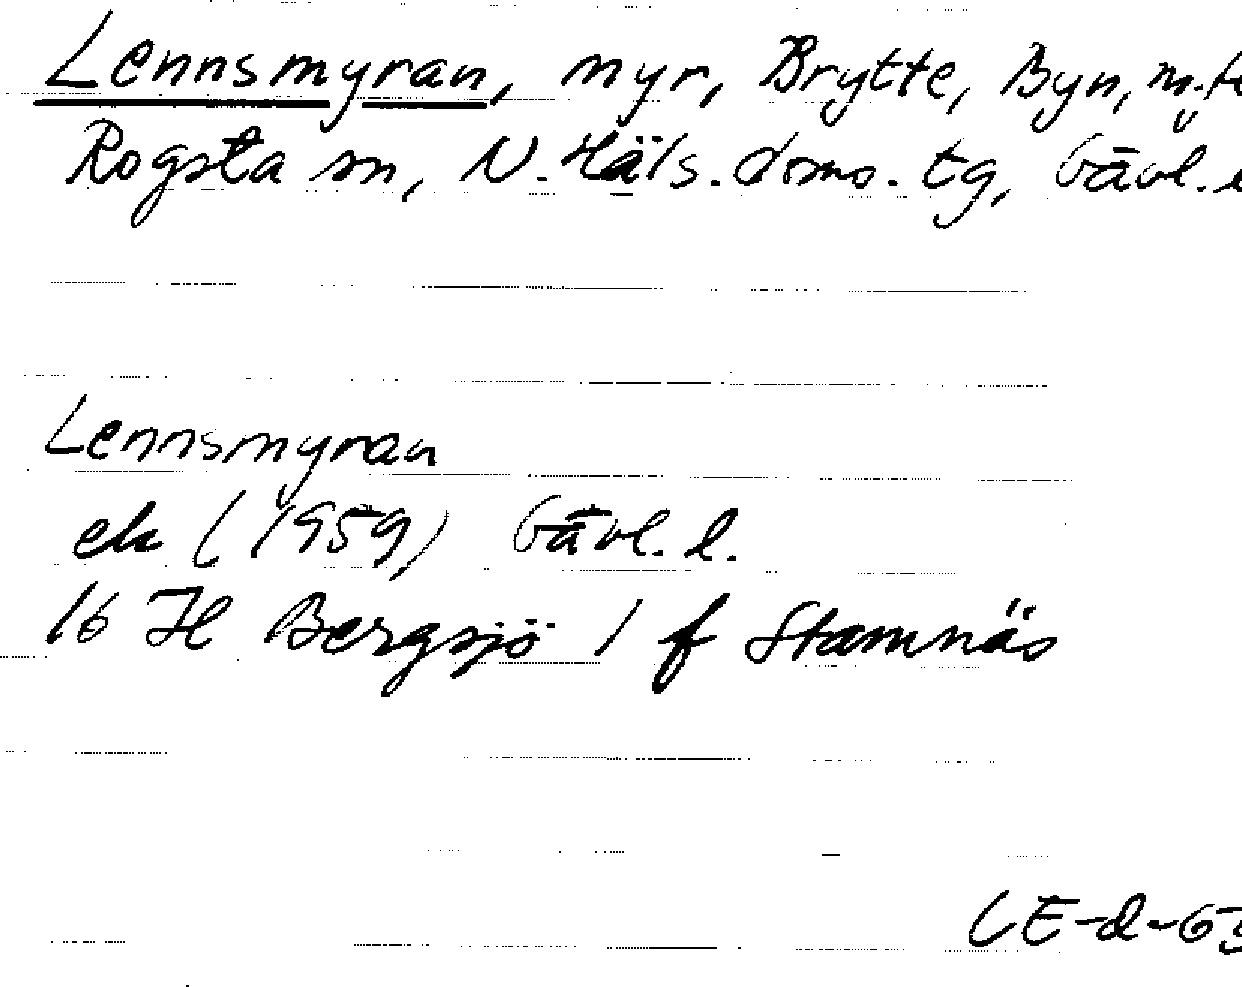 Lennsmyran, myr, Brytte, Byn, m.fl
Rogsta sn, N. Häls. doms. tg, Gävl. l
Lennsmyran
ek (1959) Gävl. l.
16 H Bergsjö 1 f Stamnäs
CE-d-63